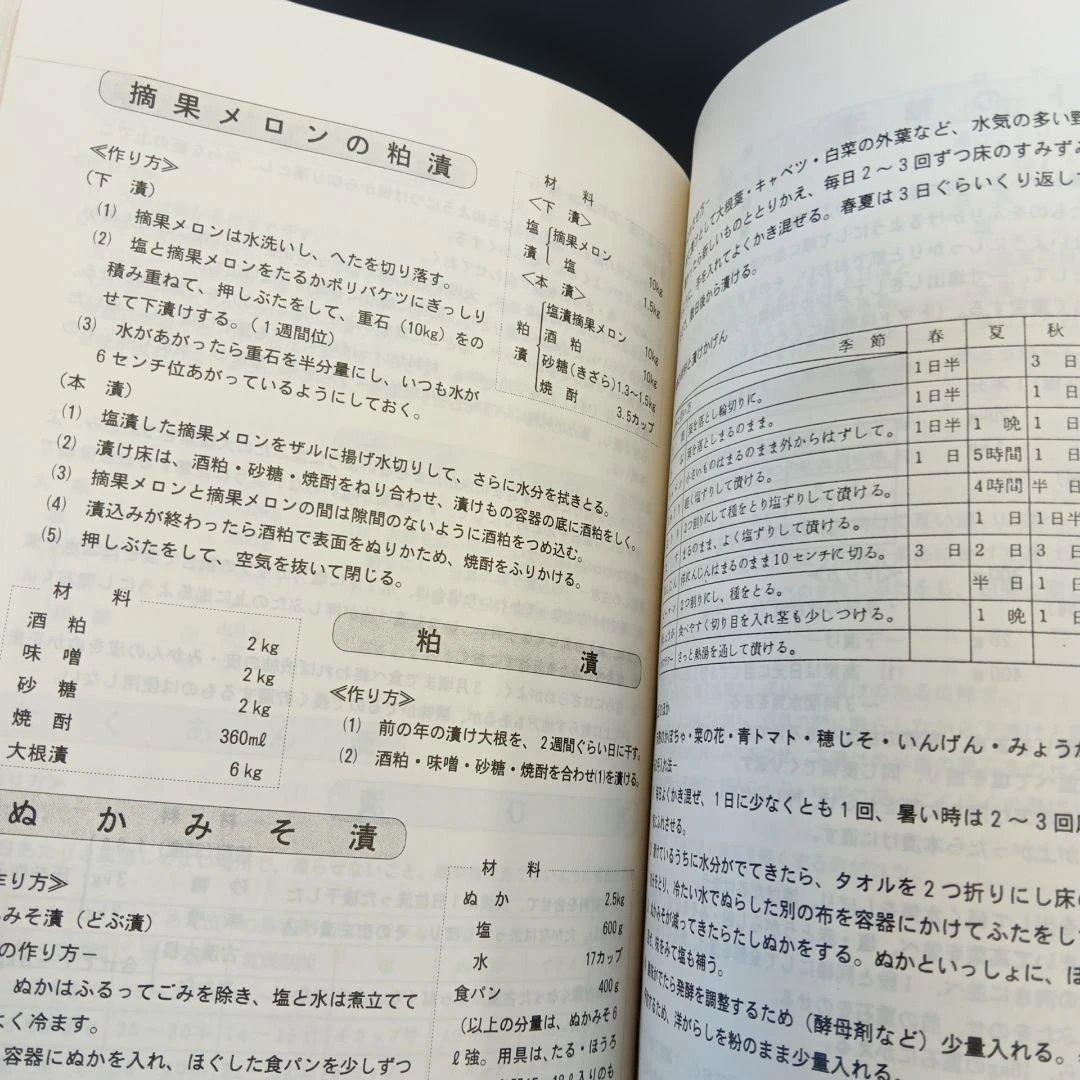 摘果メロンの粕漬
≪作り方≫
(下　漬)
(1) 摘果メロンは水洗いし、へたを切り落す。
(2) 塩と摘果メロンをたるかポリバケツにぎっしり
積み重ねて、押しぶたをして、重石(10kg)をの
せて下漬けする。(1週間位)
(3) 水があがったら重石を半分量にし、いつも水が
6センチ位あがっているようにしておく。
(本　漬)
(1) 塩漬した摘果メロンをザルに揚げ水切りして、さらに水分を拭きとる。
(2) 漬け床は、酒粕・砂糖・焼酎をねり合わせ、漬けもの容器の底に酒粕をしく。
(3) 摘果メロンと摘果メロンの間は隙間のないように酒粕をつめ込む。
(4) 漬込みが終わったら酒粕で表面をぬりかため、焼酎をふりかける。
(5) 押しぶたをして、空気を抜いて閉じる。
材　料
<下　漬>
塩漬
摘果メロン 10kg
塩 1.5kg
<本　漬>
粕漬
塩漬摘果メロン 10kg
酒　粕 10kg
砂糖(きざら) 1.3〜1.5kg
焼　酎 3.5カップ
材　料
酒　粕 2kg
味　噌 2kg
砂　糖 2kg
焼　酎 360mℓ
大根漬 6kg
粕　漬
≪作り方≫
(1) 前の年の漬け大根を、2週間ぐらい日に干す。
(2) 酒粕・味噌・砂糖・焼酎を合わせ(1)を漬ける。
ぬかみそ漬
作り方≫
みそ漬(どぶ漬)
の作り方−
ぬかはふるってごみを除き、塩と水は煮立てて
よく冷ます。
容器にぬかを入れ、ほぐした食パンを少しずつ
材　料
ぬか 2.5kg
塩 600g
水 17カップ
食パン 400g
(以上の分量は、ぬかみそ6
ℓ強。用具は、たる・ほうろ
入りのも
大根葉・キャベツ・白菜の外葉など、水気の多い野
新しいものととりかえ、毎日2〜3回ずつ床のすみずみ
手を入れてよくかき混ぜる。春夏は3日ぐらいくり返して
後から漬ける。
漬けかげん
季　節 春 夏 秋
葉を落とし輪切りに。 1日半 3　日
葉を落としまるのまま。 1日半 1　日
小さいものはまるのまま外からはずして。 1日半 1　晩 1　日
軽く塩ずりして漬ける。 1　日 5時間 1　日
2つ割りにして種をとり塩ずりして漬ける。 4時間 半　日
まるのまま、よく塩ずりして漬ける。 1　日 1日半
にんじんはまるのまま10センチに切る。 3　日 2　日 3　日
2つ割りにし、種をとる。 半　日 1　日
食べやすく切り目を入れ茎も少しつける。 1　晩 1　日
さっと熱湯を通して漬ける。
かぼちゃ・菜の花・青トマト・穂じそ・いんげん・みょうが
入れ法−
よくかき混ぜ、1日に少なくとも1回、暑い時は2〜3回
ふれさせる。
漬けているうちに水分がでてきたら、タオルを2つ折りにし床の
をとり、冷たい水でぬらした別の布を容器にかけてふたをして
ぬかみそが減ってきたらたしぬかをする。ぬかといっしょに、ほ
味をみて塩も補う。
がでたら発酵を調整するため(酵母剤など)少量入れる。
するため、洋がらしを粉のまま少量入れる。